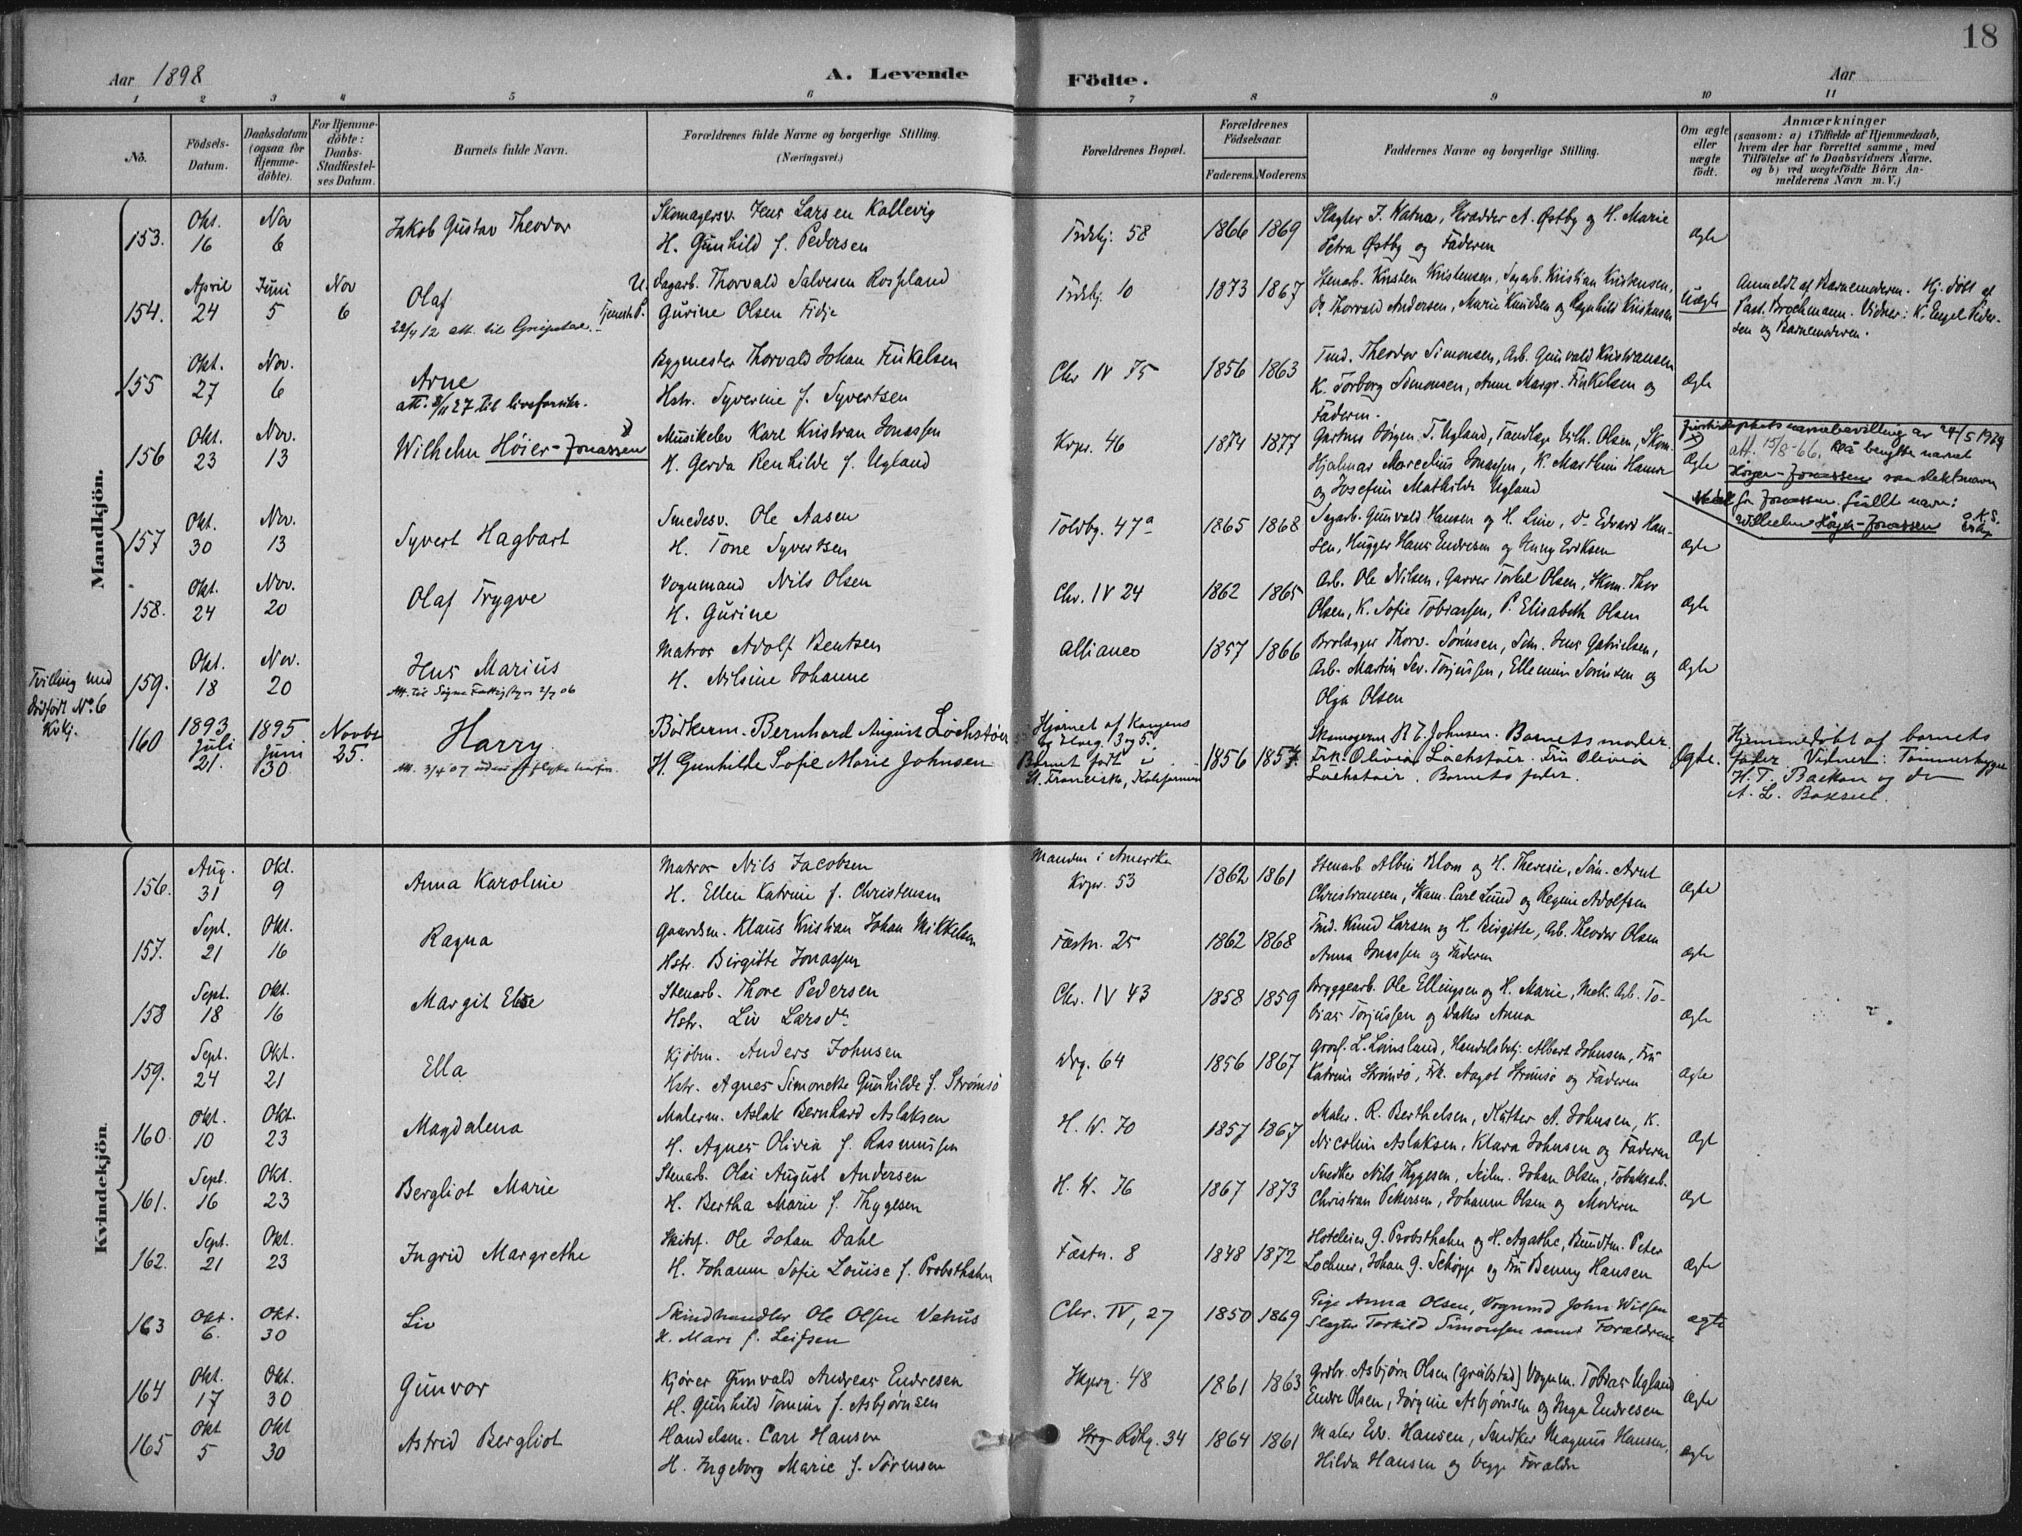 18
Aar 1898 A. Levende Födte. Aar
1 2 3 4 5 6 7 8 9 10 11
No. Födsels-Datum. Daabsdatum (ogsaa för Hjemme-döbte). For Hjemme-döbte: Daabs-Stadfæstel-ses Datum. Barnets fulde Navn. Forældrenes fulde Navne og borgerlige Stilling. (Næringsvei.) Forældrenes Bopæl. Forældrenes Födselsaar. Faderens. Moderens Faddernes Navne og borgerlige Stilling. Om ægte eller uægte födt. Anmærkninger (saasom: a) i Tilfælde af Hjemmedaab, hvem der har forrettet samme, med Tilföielse af to Daabsvidners Navne, og b) ved uægtefödte Börn Anmelderens Navn m. V.)
Mandkjön.
153. Okt. 16 Nov 6 Jakob Gustav Theodor Skomagersv. Jens Larsen Kallevig
H. Gunhild f. Pedersen 58 1866 1869 Slagter J. Watne, Skrædder A. Østby og H. Marie
Petra Østby og Faderen Ægte
154. April 24 Juni 5 Nov 6 Olaf U. Dagarb. Thorvald Salvesen Rosseland
Tjenestep. Gurine Olsen Fidje 10 1873 1867 Stenarb. Kristen Kristensen, Sagarb. Kristian Kristensen,
Do Thorvald Andersen, Marie Knudsen og Ragnhild Kristensen Uægte
Anmeldt af Barnemoderen. Hj. døbt af
Past. Brochmann. Vidner: K. Engel Peder-
sen og Barnemoderen.
155 Okt. 27 Nov. 6 Arne
att. 3/11 27 til livsforsikr. Bygmester Thorvald Johan Terkelsen
Hstr. Syverine f. Syvertsen Chr IV 75 1856 1863 Tmd. Theodor Simonsen, Arb. Gunvald Kristiansen
K. Torborg Simonsen, Anne Margr. Terkelsen og
Faderen. Ægte
156 Okt. 23 Nov. 13 Wilhelm Höier-Jonassen Musikelev Karl Kristian Jonassen
H. Gerda Renhilde f. Ugland Krpr. 46 1874 1877 Gartner Jörgen T. Ugland, Tandlæge Vilh. Olsen, Skom.
Hjalmar Marcelius Jonassen, K. Marthine Hamre
og Josefine Mathilde Ugland Ægte
navnebevilling av 24/5 1929
att. 15/8-66. benytte navnet
Höyer-Jonassen som slektsnavn
for Jonassen. fullt navn:
Wilhelm Höyer-Jonassen
157 Okt. 30 Nov. 13 Syvert Hagbart Smedesv. Ole Aasen
H. Tone Syvertsen Toldbg. 47a 1865 1868 Sagarb. Gunvald Hansen og H. Line, do Edvard Han-
sen, Hugger Hans Endresen og Jenny Eriksen Ægte
158. Okt. 24 Nov. 20 Olaf Trygve Vognmand Nils Olsen
H. Gurine Chr. IV 24 1862 1865 Arb. Ole Nilsen, Garver Terkel Olsen, Skom. Thor
Olsen, K. Sofie Tobiassen, P. Elisabeth Olsen Ægte
Tvilling med
dödfödt No 6
Kvkj.
159. Okt. 18 Nov. 20 Jens Marius Matros Adolf Bentsen
H. Nilsine Johanne Alliance 1857 1866 Brolægger Thorv. Sørensen, Søm. Jens Gabrielsen,
Arb. Martin Sev. Torjussen, Ellemine Sörensen og
Olga Olsen Ægte
160 1893 Juli 21. 1895 Juni 30 Novbr 25. Harry Bödkerm. Bernhard August Löchstöer
H. Gunhilde Sofie Marie Johnsen Hjørnet af Kongens
og Elveg. 3 og 5.
Barnet født i
St. Francisko, Kalifornien 1856 1857 Skomagerm R T. Johnsen. Barnets moder.
Frk. Olivia Löchstöer. Fru Olivia
Löchstöer. Barnets fader. Ægte.
Hjemmedøbt af barnets
fader. Vidner: Tømmerhugger
H. T. Backen og
A. L. Boksen.
Kvindekjön.
156. Aug. 31 Okt. 9 Anna Karoline Matros Nils Jacobsen
H. Ellen Katrine f. Christensen Manden i Amerika
Krpr. 53 1862 1861 Stenarb Albin Blom og H. Therese, Søm. Arnt
Christiansen, Skom. Carl Lund og Regine Adolfsen Ægte
157. Sept. 21 Okt. 16 Ragna Gaardsm. Klaus Kristian Johan Mikkelsen
Hstr. Birgitte Jonassen Fæstn. 25 1862 1868 Tmd. Knud Larsen og H Birgitte, Arb. Theodor Olsen
Anna Jonassen og Faderen Ægte
158 Sept. 18 Okt. 16 Margit Else Stenarb. Thore Pedersen
Hstr. Liv Larsdtr Chr. IV 43 1858 1859 Bryggearb. Ole Ellingsen og H. Marie, Mek. Arb. To-
bias Torjussen og Datter Anna Ægte
159. Sept. 24 Okt. 21 Ella Kjöbm. Anders Johnsen
Hstr. Agnes Simonette Gunhilde f. Strömsö Drg. 64 1856 1867 Gross. L. Lömsland, Handelsbetj. Albert Johnsen, Fru
Katrine Strömsö, Frk. Aagot Strömsö og Faderen Ægte
160. Okt. 10 Okt. 23 Magdalena Malerm. Aslak Bernhard Aslaksen
H. Agnes Olivia f. Rasmussen H. W. 70 1857 1867 Maler. R. Berthelsen, A. Johnsen, K.
Nicoline Aslaksen, Klara Johnsen og Faderen Ægt
161. Sept. 16 Okt. 23 Bergliot Marie Stenarb. Olai August Andersen
H. Bertha Marie f. Thygesen H. W. 76 1867 1873 Snedker Nils Thygesen, Seilm. Johan Olsen, Tobaksarb.
Christian Pettersen, Johanne Olsen og Moderen Ægt
162. Sept. 21 Okt. 23 Ingrid Margrethe Skibsf. Ole Johan Dahl
H. Johanne Sofie Louise f. Probsthahn Fæstn. 8 1848 1872 Hoteleier G. Probsthahn og H. Agathe, Bundtm. Peter
Lochner, Johan G. Schöpp og Fru Benny Hansen Ægte
163 Okt. 6. Okt. 30 Liv Skindhandler Ole Olsen Vehus
H. Mari f. Leifsen Chr. IV, 27 1850 1869 Pige Anna Olsen, Vognmd John Nilsen
Slagter Torkild Simonsen samt Forældrene ægte
164 Okt. 17 Okt. 30 Gunvor Kjører Gunvald Andreas Endresen
H. Gunhild Tomine f. Asbjørnsen Skprg. 48 1861 1863 Grdbr. Asbjørn Olsen (Gröbstad) Vognm. Tobias Ugland
Endre Olsen, Jørgine Asbjørnsen og Inga Endresen Ægte
165 Okt 5 Okt 30 Astrid Bergliot Handelsm. Carl Hansen
H. Ingeborg Marie f. Sørensen Rdhg. 34 1864 1861 Maler Edv. Hansen, Snedker Magnus Hansen,
Hilda Hansen og begge Forældre Ægte